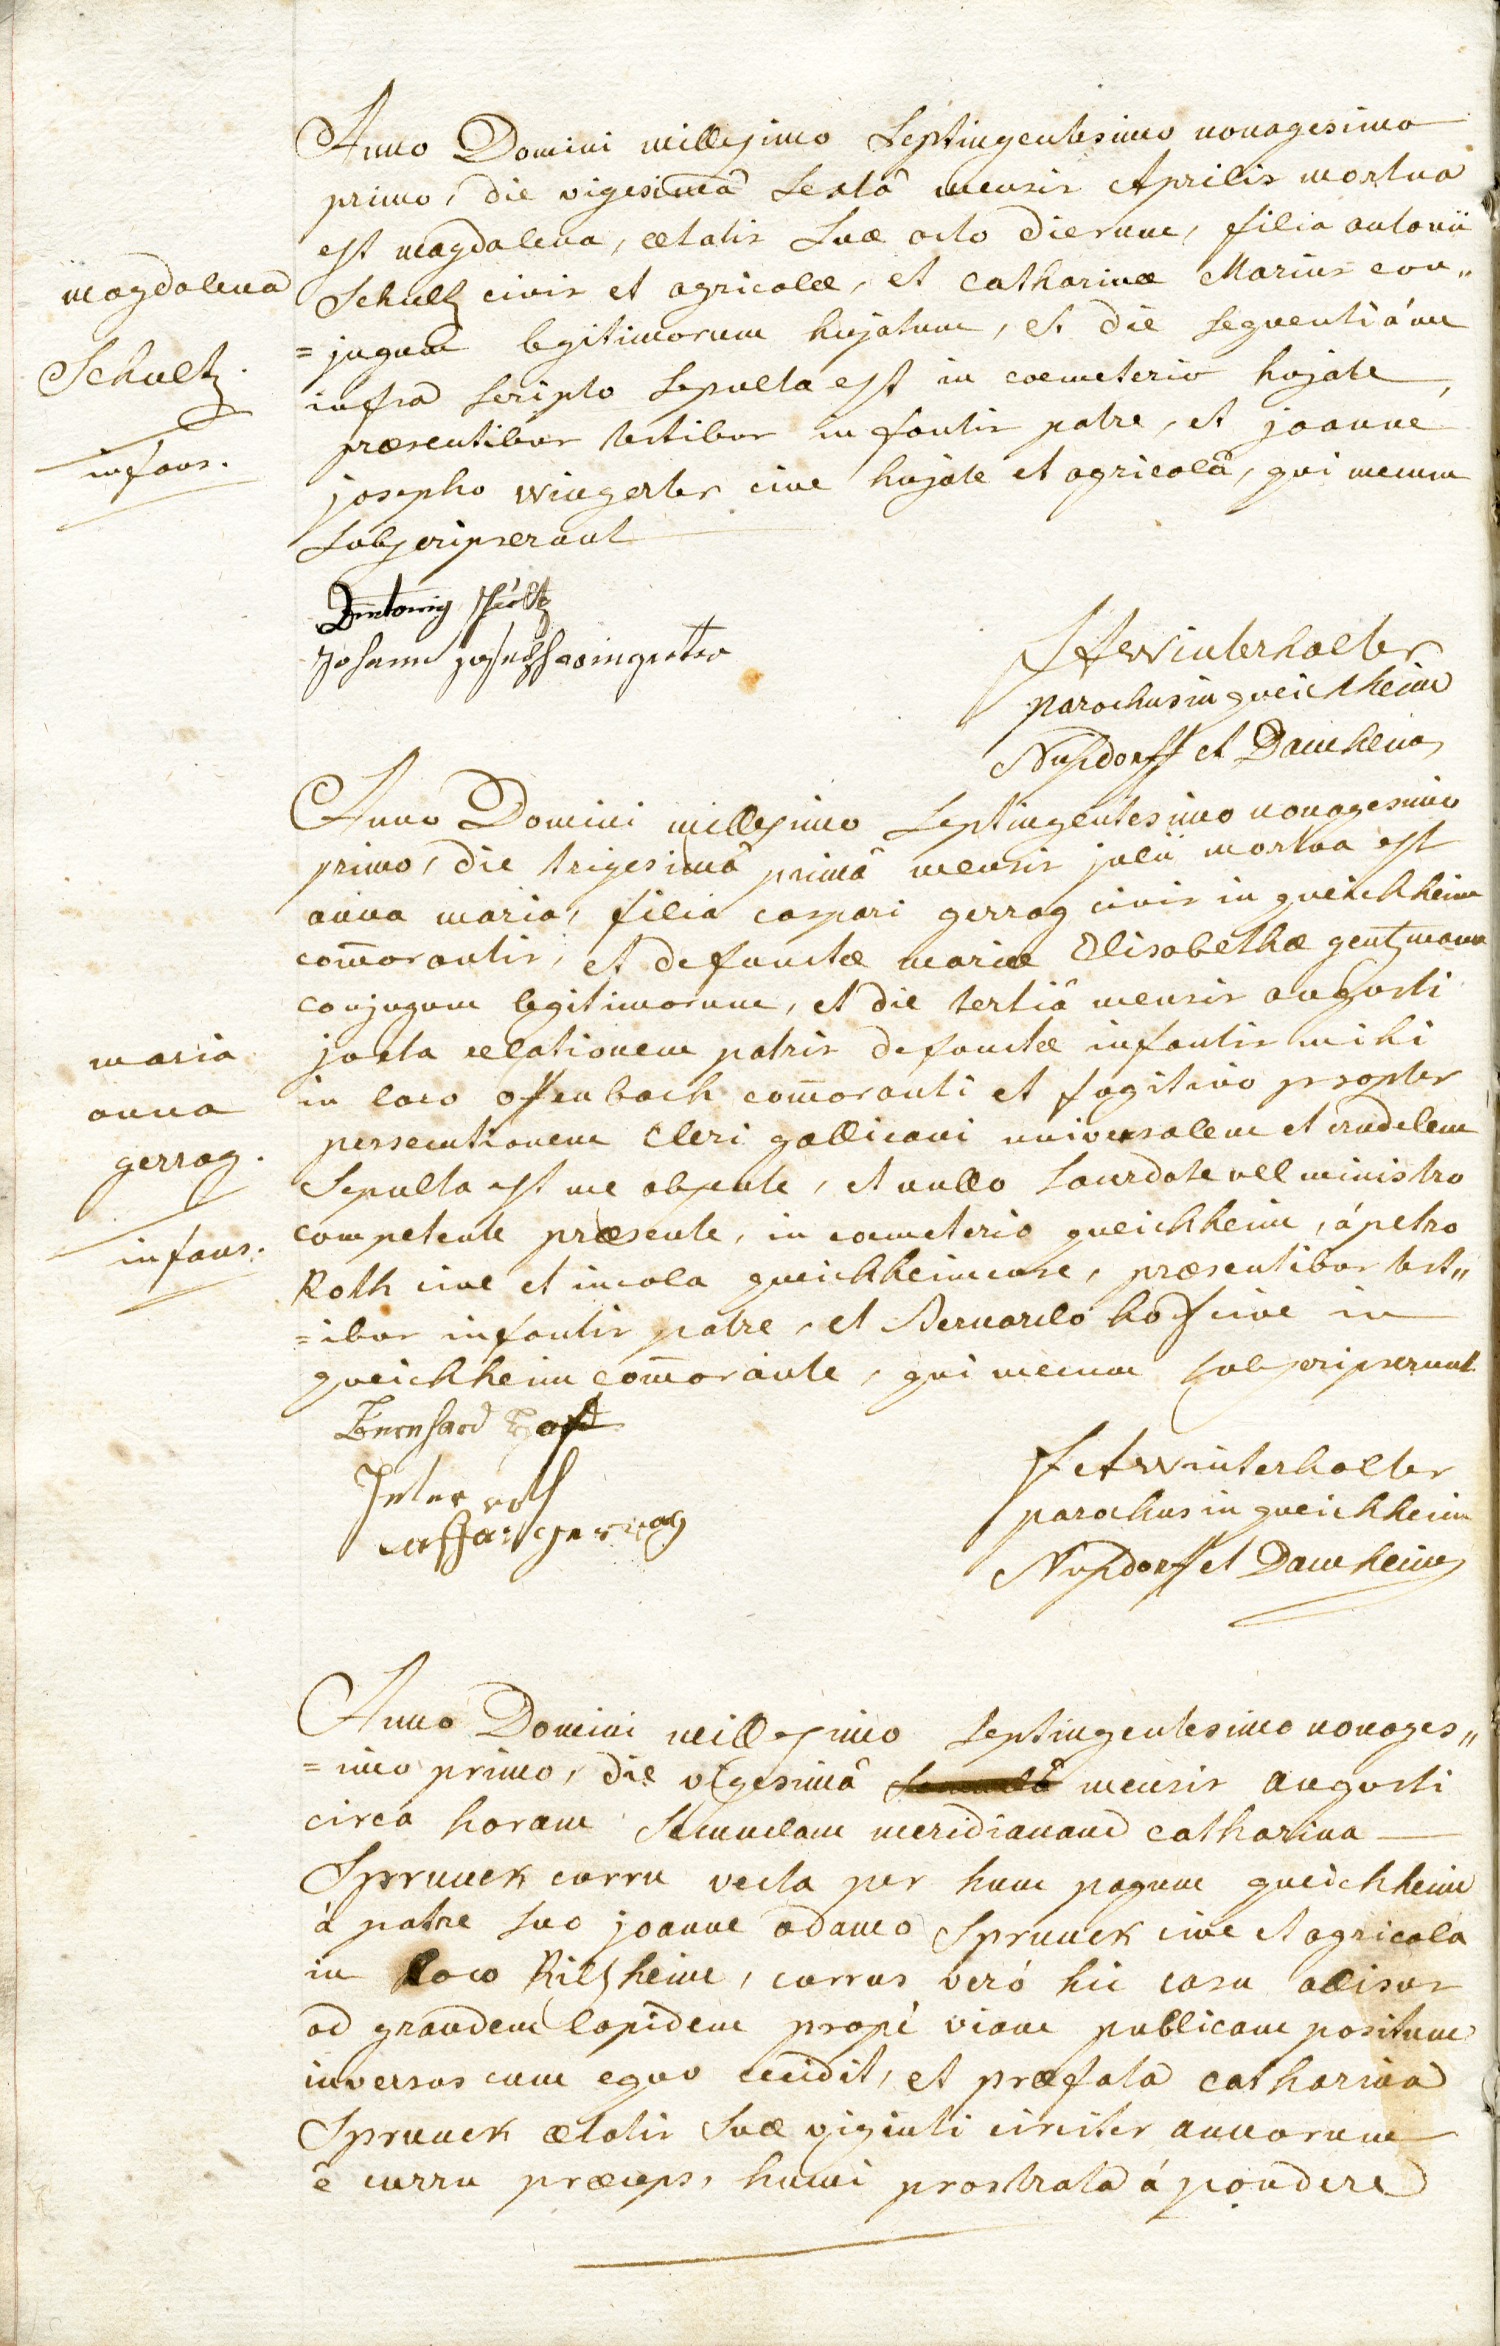 Anno Domini millesimo Septingentesimo nonagesimo
primo, die vigesimâ Sextâ mensis Aprilis mortua
est magdalena, ætatis Suæ octo dierum, filia antonii
Schultz civis et agricolæ, et Catharinæ Marius con„
=jugum legitimorum hujatum, et die Sequenti á me
infra Scripto Sepulta est in coemeterio hujate,
præsentibus testibus infantis patre, et joanne
josepho wingerter cive hujate et agricolâ, qui mecum
Subscripserunt
magdalena
Schultz.
infans.
Johann joseph wingerter
FA Winterhalter
parochus in queichheim
Nusdorff et Damheim
Anno Domini millesimo Septingentesimo nonagesimo
primo, die trigesimâ primâ mensis julii mortua est
anna maria, filia caspari gerrag civis in queichheim
com̄orantis, et defunctæ mariæ Elisabethæ gentzmann
conjugum legitimorum, et die tertiâ mensis augusti
juxta relationem patris defunctæ infantis mihi
in loco offenbach com̄oranti et fugitivo propter
persecutionem Cleri gallicani universalem et crudelem
Sepulta est me absente, et nullo Sacerdote vel ministro
competente præsente, in coemeterio queichheim, á petro
Roth cive et incola queichheimense, præsentibus test„
=ibus infantis patre, et Bernardo hoff cive in
queichheim com̄orante, qui mecum Subscripserunt
maria
anna
gerrag.
infans.
Bernhard Hoff
Peter roth
Casspar gerrag
FA Winterhalter
parochus in queichheim
Nusdorff et Damheim
Anno Domini millesimo Septingentesimo nonages„
=imo primo, die vigesimâ mensis augusti
circa horam Secundam meridianam catharina
Sprunck curru vecta per hunc pagum queichheim
á patre Suo joanne adamo Sprunck cive et agricola
in Loco Rilsheim, currus veró hic casu alisus
ad grandem lapidem propé viam publicam positum
inversus cum equo cecidit, et præfata catharina
Sprunck ætatis Suæ viginti circiter annorum
é curru præceps, humi prostrata á pondere